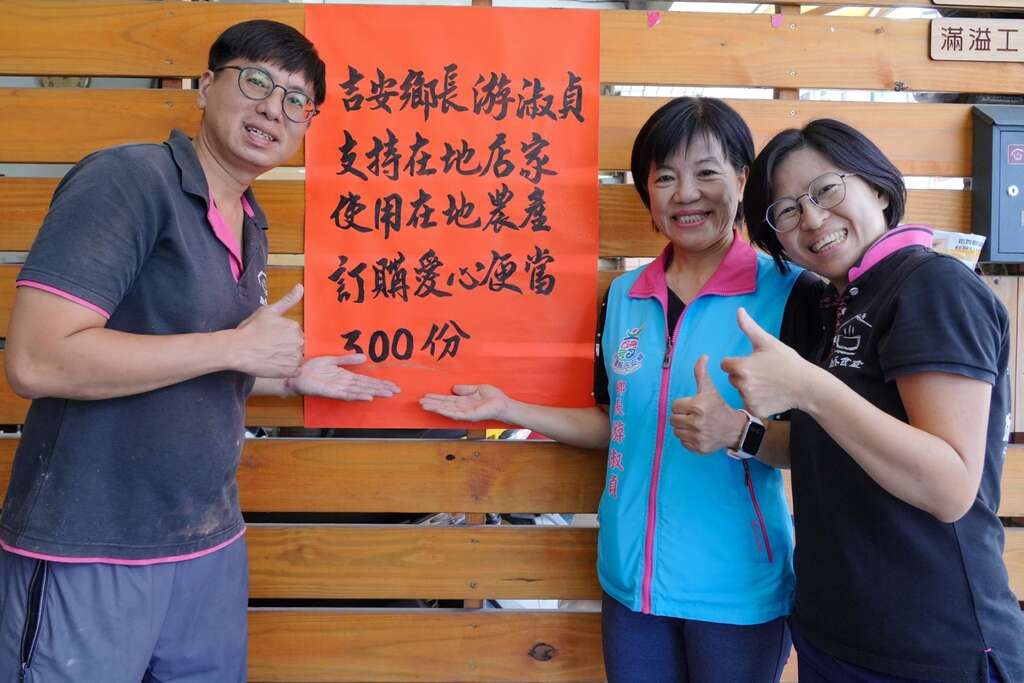 吉安鄉長游淑貞
支持在地店家
使用在地農產
訂購愛心便當
300份
滿溢工
鄉長 游淑貞